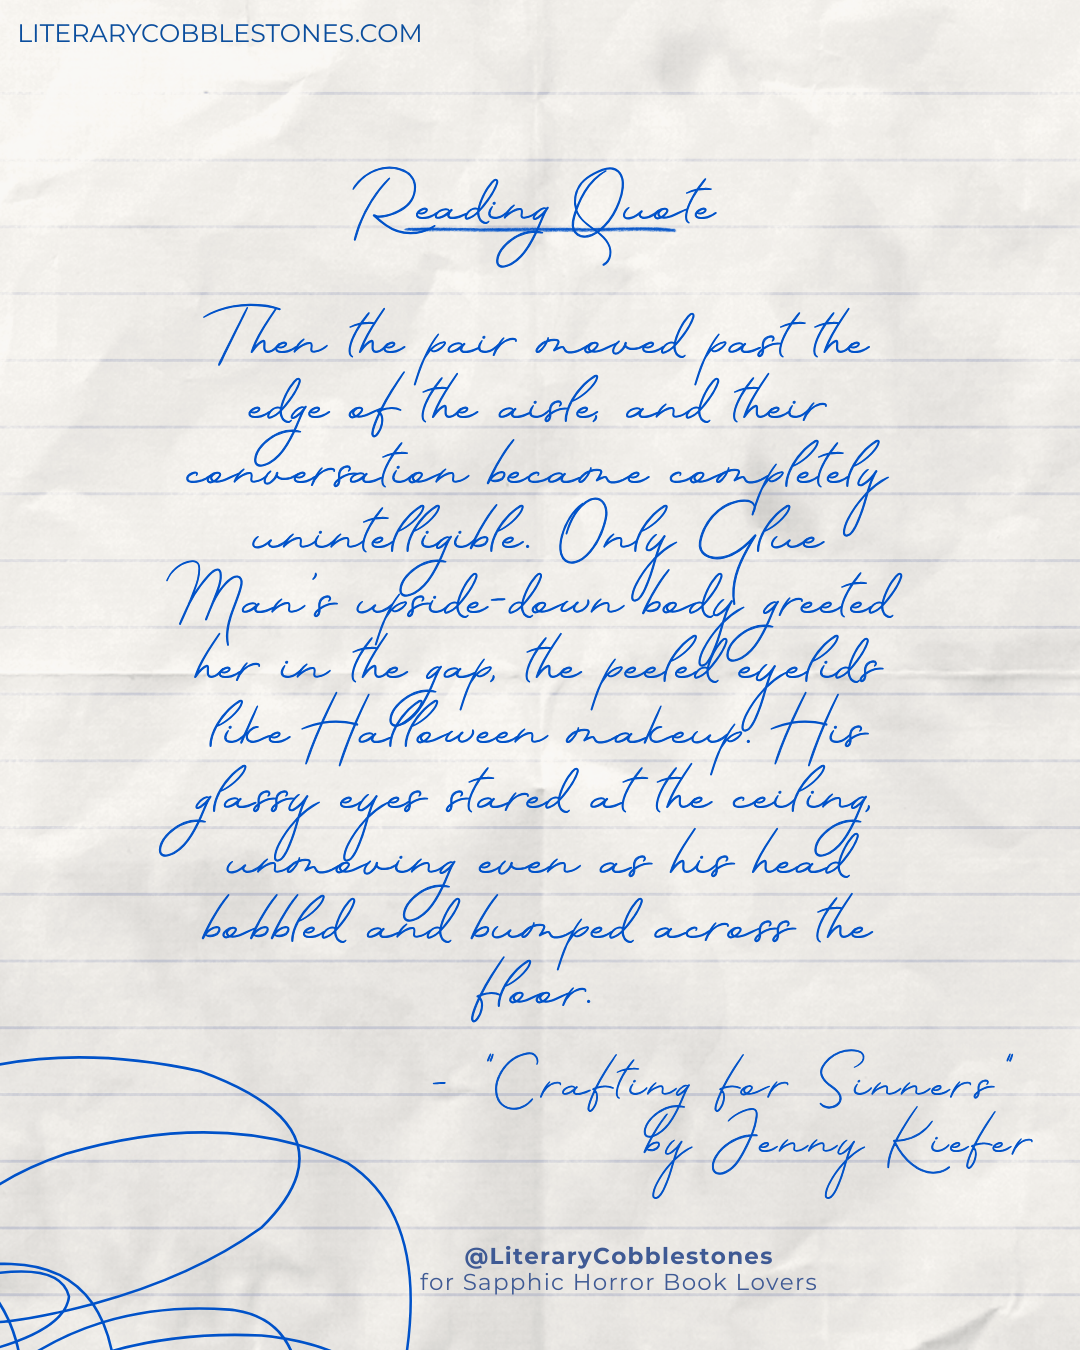 LITERARYCOBBLESTONES.COM
Reading Quote
Then the pair moved past the
edge of the aisle, and their
conversation became completely
unintelligible. Only Glue
Man's upside-down body greeted
her in the gap, the peeled eyelids
like Halloween makeup. His
glassy eyes stared at the ceiling,
unmoving even as his head
bobbled and bumped across the
floor.
- "Crafting for Sinners"
by Jenny Kiefer
@LiteraryCobblestones
for Sapphic Horror Book Lovers